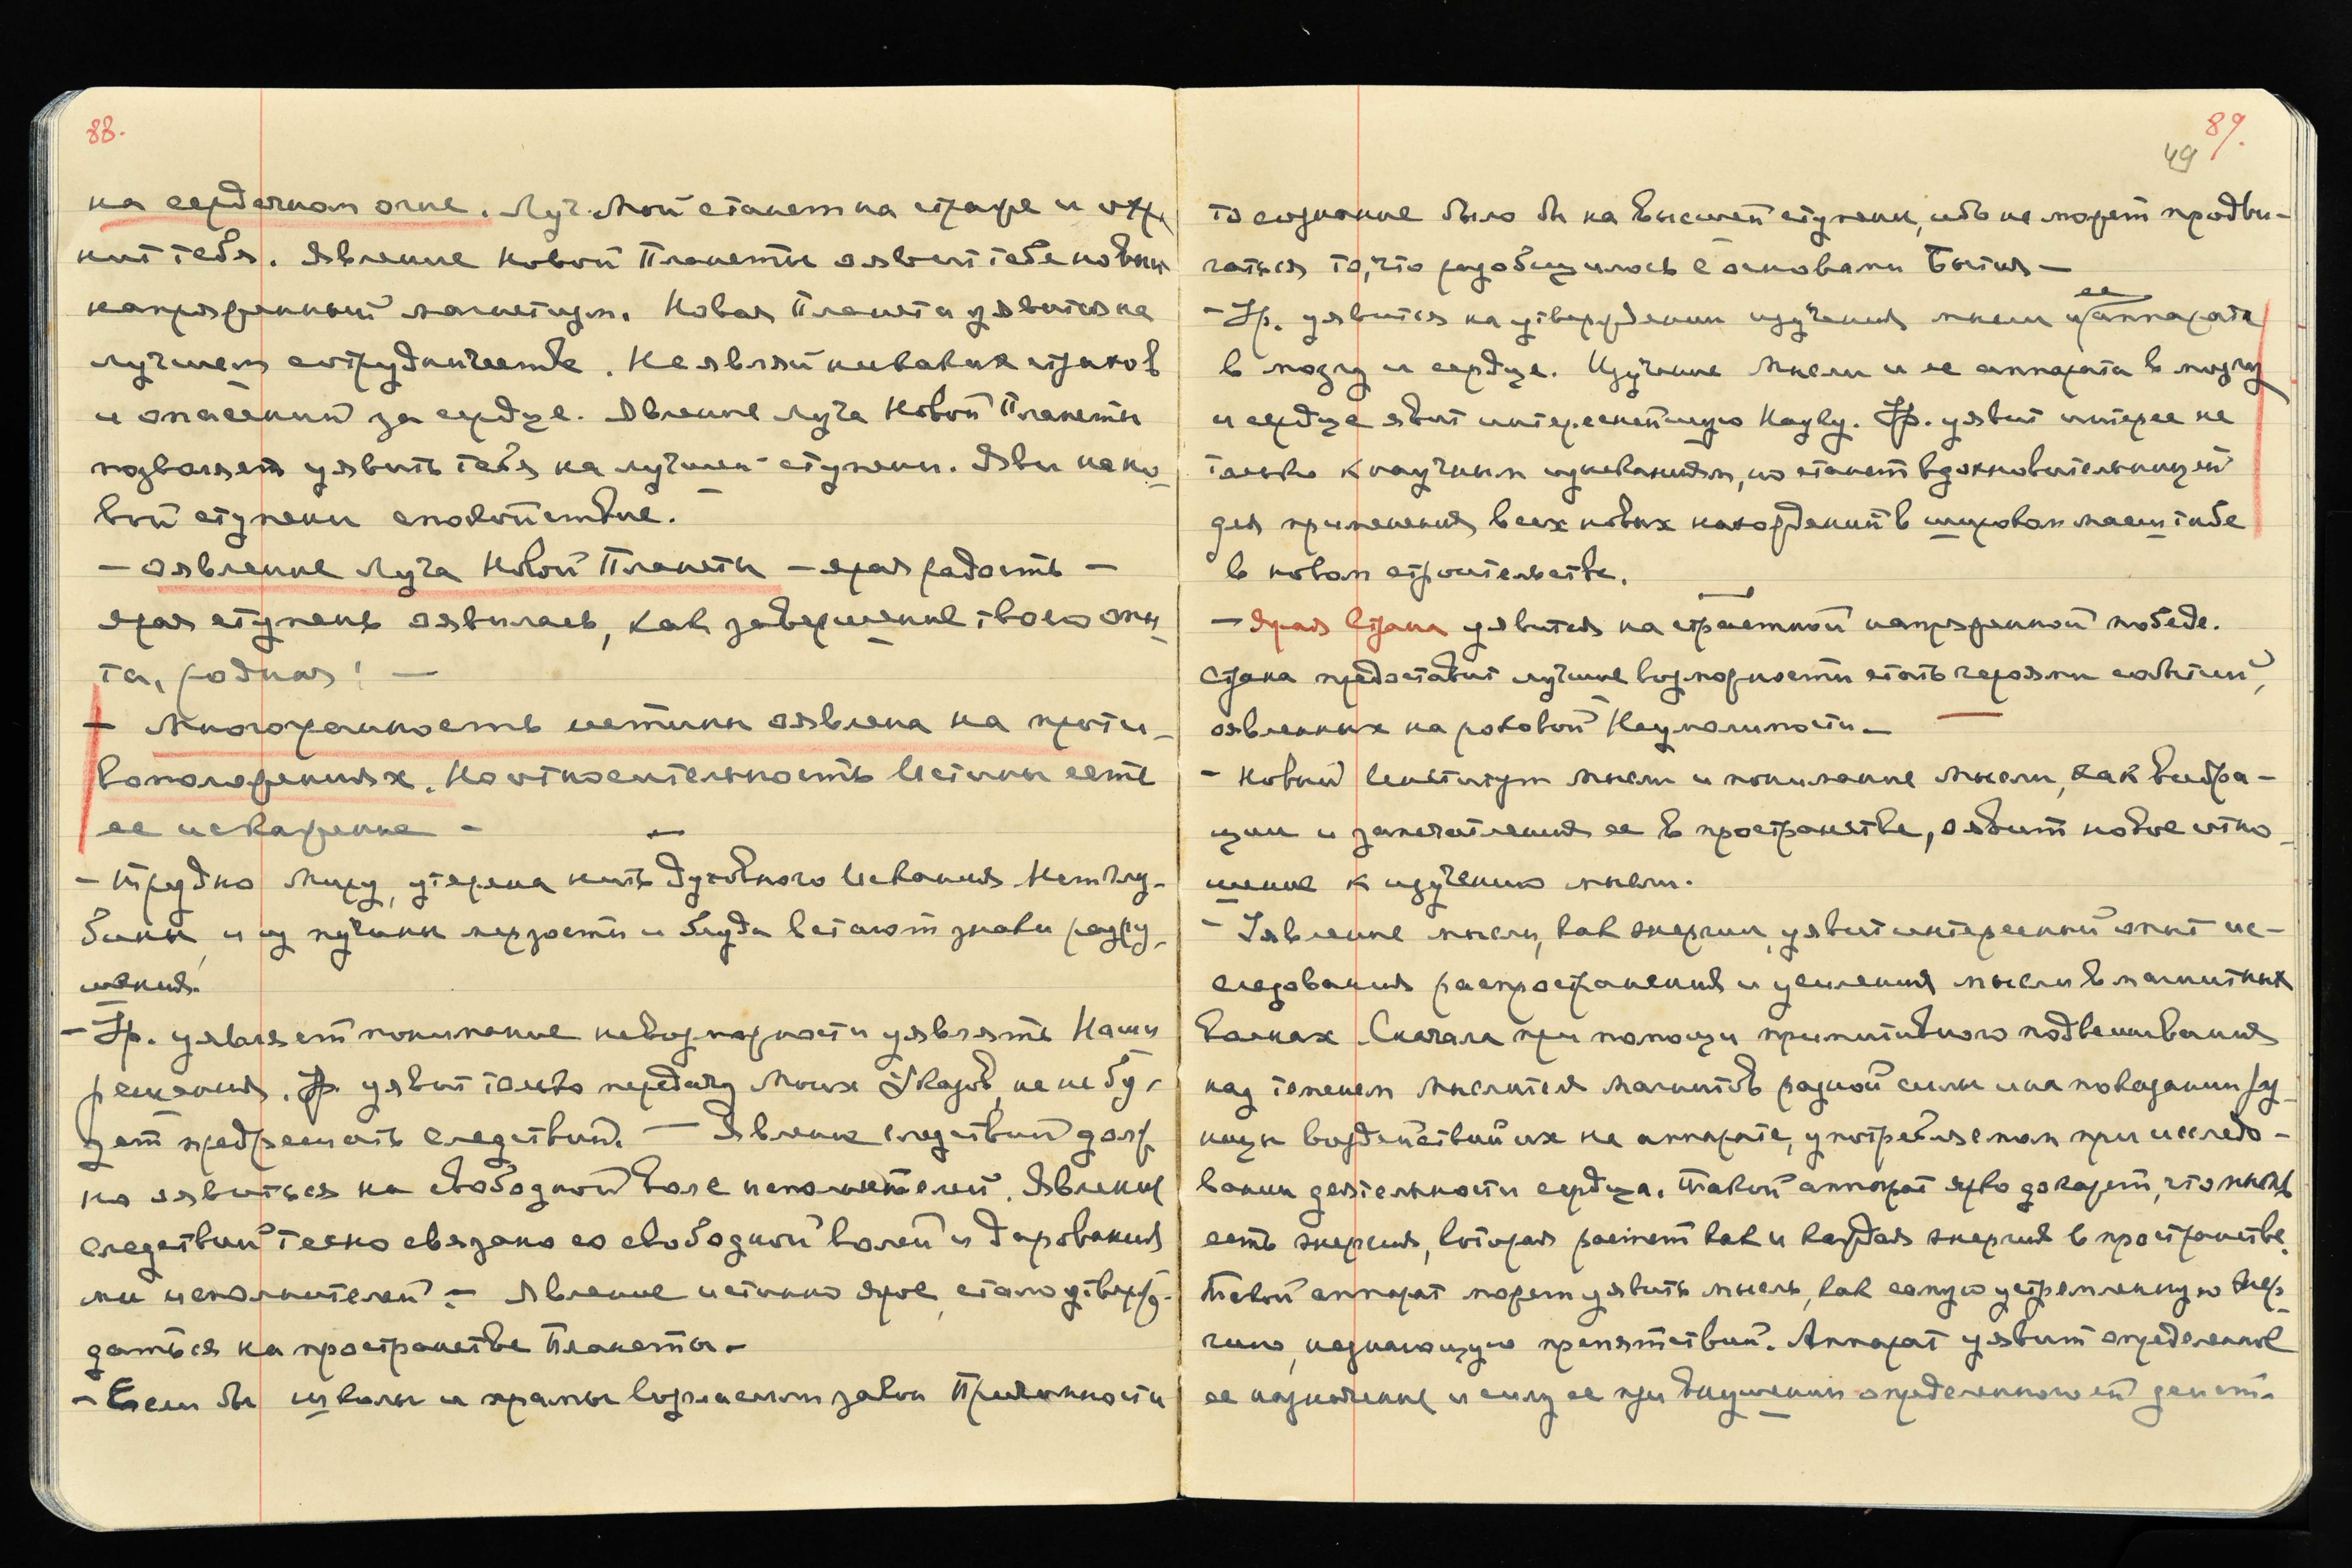 88.
на сердечном огне. Луч Мой станет на страже и охра
нит тебя. Явление Новой Планеты оявит тебе новый
напряженный магнетизм. Новая Планета уявится на
лучшем сотрудничестве. Не являй никаких страхов
и опасений за сердце. Явление луча Новой Планеты
позволяет уявить тебя на лучшей ступени. Яви на но-
вой ступени спокойствие.
— оявление Луча Новой Планеты — ярая радость —
ярая ступень оявилась, как завершение твоего опы-
та, родная! —
— Многогранность истины оявлена на проти-
воположениях. Но относительность Истины есть
ее искажение —
— Трудно Миру, утеряна нить духовного Искания. Нет глу-
бины, и из пучины мерзости и блуда встают знаки разру-
шения.
— Ур. уявляет понимание невозможности уявлять Наши
решения. Ур. уявит только передачу Моих Указов, но не бу-
дет предрешать следствий. — Явление следствий долж
но оявиться на свободной воле исполнителей. Явление
следствий тесно связано со свободной волей и дарования
ми исполнителей — Явление истинно ярое, стало утверж-
даться на пространстве Планеты —
— Если бы школы и храмы возгласили закон Причинности
89.
49
то сознание было бы на высшей ступени, ибо не может продви-
гаться то, что разобщилось с основами Бытия —
— Ур. уявится на утверждении изучения мысли и ее аппарата
в мозгу и сердце. Изучение Мысли и ее аппарата в мозгу
и сердце явит интереснейшую Науку. Ур. уявит интерес не
только к научным изысканиям, но станет вдохновительницей
для применения всех новых нахождений в широком масштабе
в новом строительстве.
— Ярая Страна уявится на страстной напряженной победе.
Страна предоставит лучшие возможности стать героями событий,
оявленных на роковой Неумолимости —
— Новый Институт Мысли и понимание Мысли, как вибра-
ции и запечатления ее в пространстве, оявит новое отно-
шение к изучению мысли.
— Уявление мысли, как энергии, уявит интересный опыт ис-
следования распространения и усиления мысли в магнитных
волнах. Сначала при помощи примитивного подвешивания
над теменем мыслителя магнитов разной силы и на показании раз
ницы воздействий их на аппарате, употребляемом при исследо-
вании деятельности сердца. Такой аппарат ярко докажет, что мысль
есть энергия, которая растет как и каждая энергия в пространстве.
Такой аппарат может уявить мысль, как самую устремленную энер-
гию, незнающую препятствий. Аппарат уявит определенное
ее назначение и силу ее при внушении определенного ей дейст-